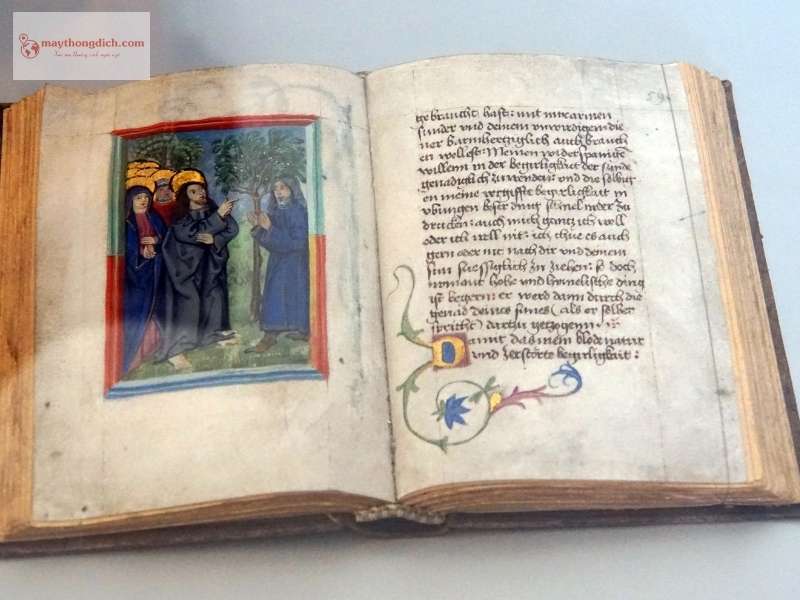 maythongdich.com
59
gebraucht hast: mit mir armen
sunder vnd deinem vnwirdigen die
ner barmhertziglich auch brauch
en wollest: Meinen widerspanite
willem in der begirligkait der sunde
genadiglich zu wenden: vnd die selbig
en meine vergiffte begirligkait in
vbungen beser ding
drucken: auch mich gantz ich woll
oder ich well nit: ich thue es auch
gern oder nit nach dir vnd deinem
sun zu ziehen: so doch
niemant hohe vnd himelische ding
ist begern er werd dann durch die
genad deines sunes (als er selber
spricht) dartzu getzogenn
Damit das mein blode natur
vnd zerstörte begirligkait: